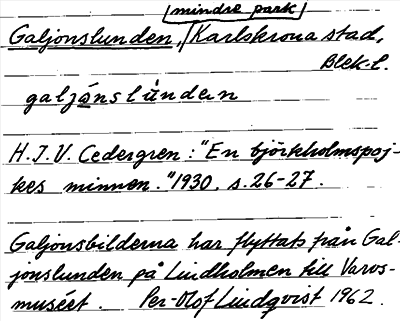 mindre park
Galjonslunden, Karlskrona stad,
Blek. l.
galjɔnslɵndən
H.J.V. Cedergren: "En björkholmspoj-
kes minnen." 1930, s. 26-27.
Galjonsbilderna har flyttats från Gal-
jonslunden på Lindholmen till Varvs-
muséet. Per-Olof Lindqvist 1962.